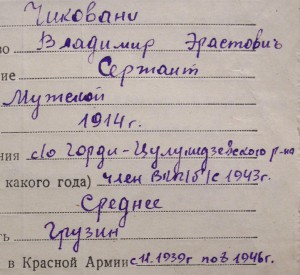 Чиковани
во Владимир Эрастович
ние Сержант
Мужской
1914 г.
ния с/о Горди-Цулукидзевского р-на
какого года) член ВКП/б/с 1943г.
Среднее
ть Грузин
в Красной Армии с 11. 1939г по 5 1946г.